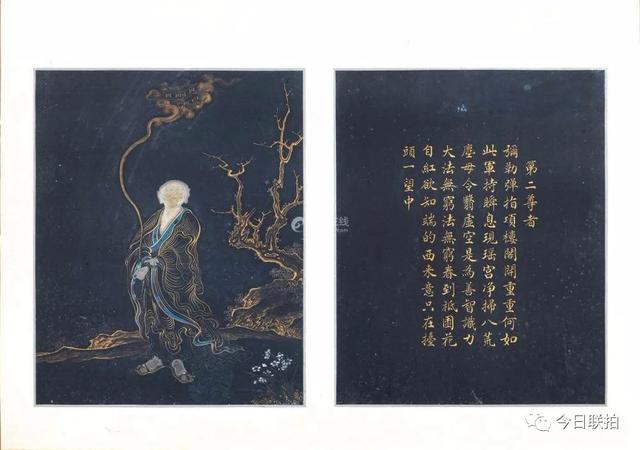 第二尊者
彌勒弹指項樓閣開重重何如
此軍持瞬息現瑶宫净掃八荒
塵毋令翳虚空是為善智識力
大法無窮法無窮春到祇園花
自紅欲知端的西来意只在擡
頭一望中
今日联拍